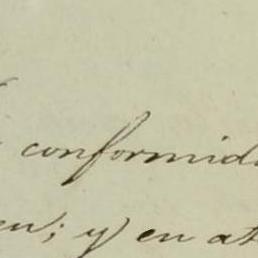 conformid
en; y en at